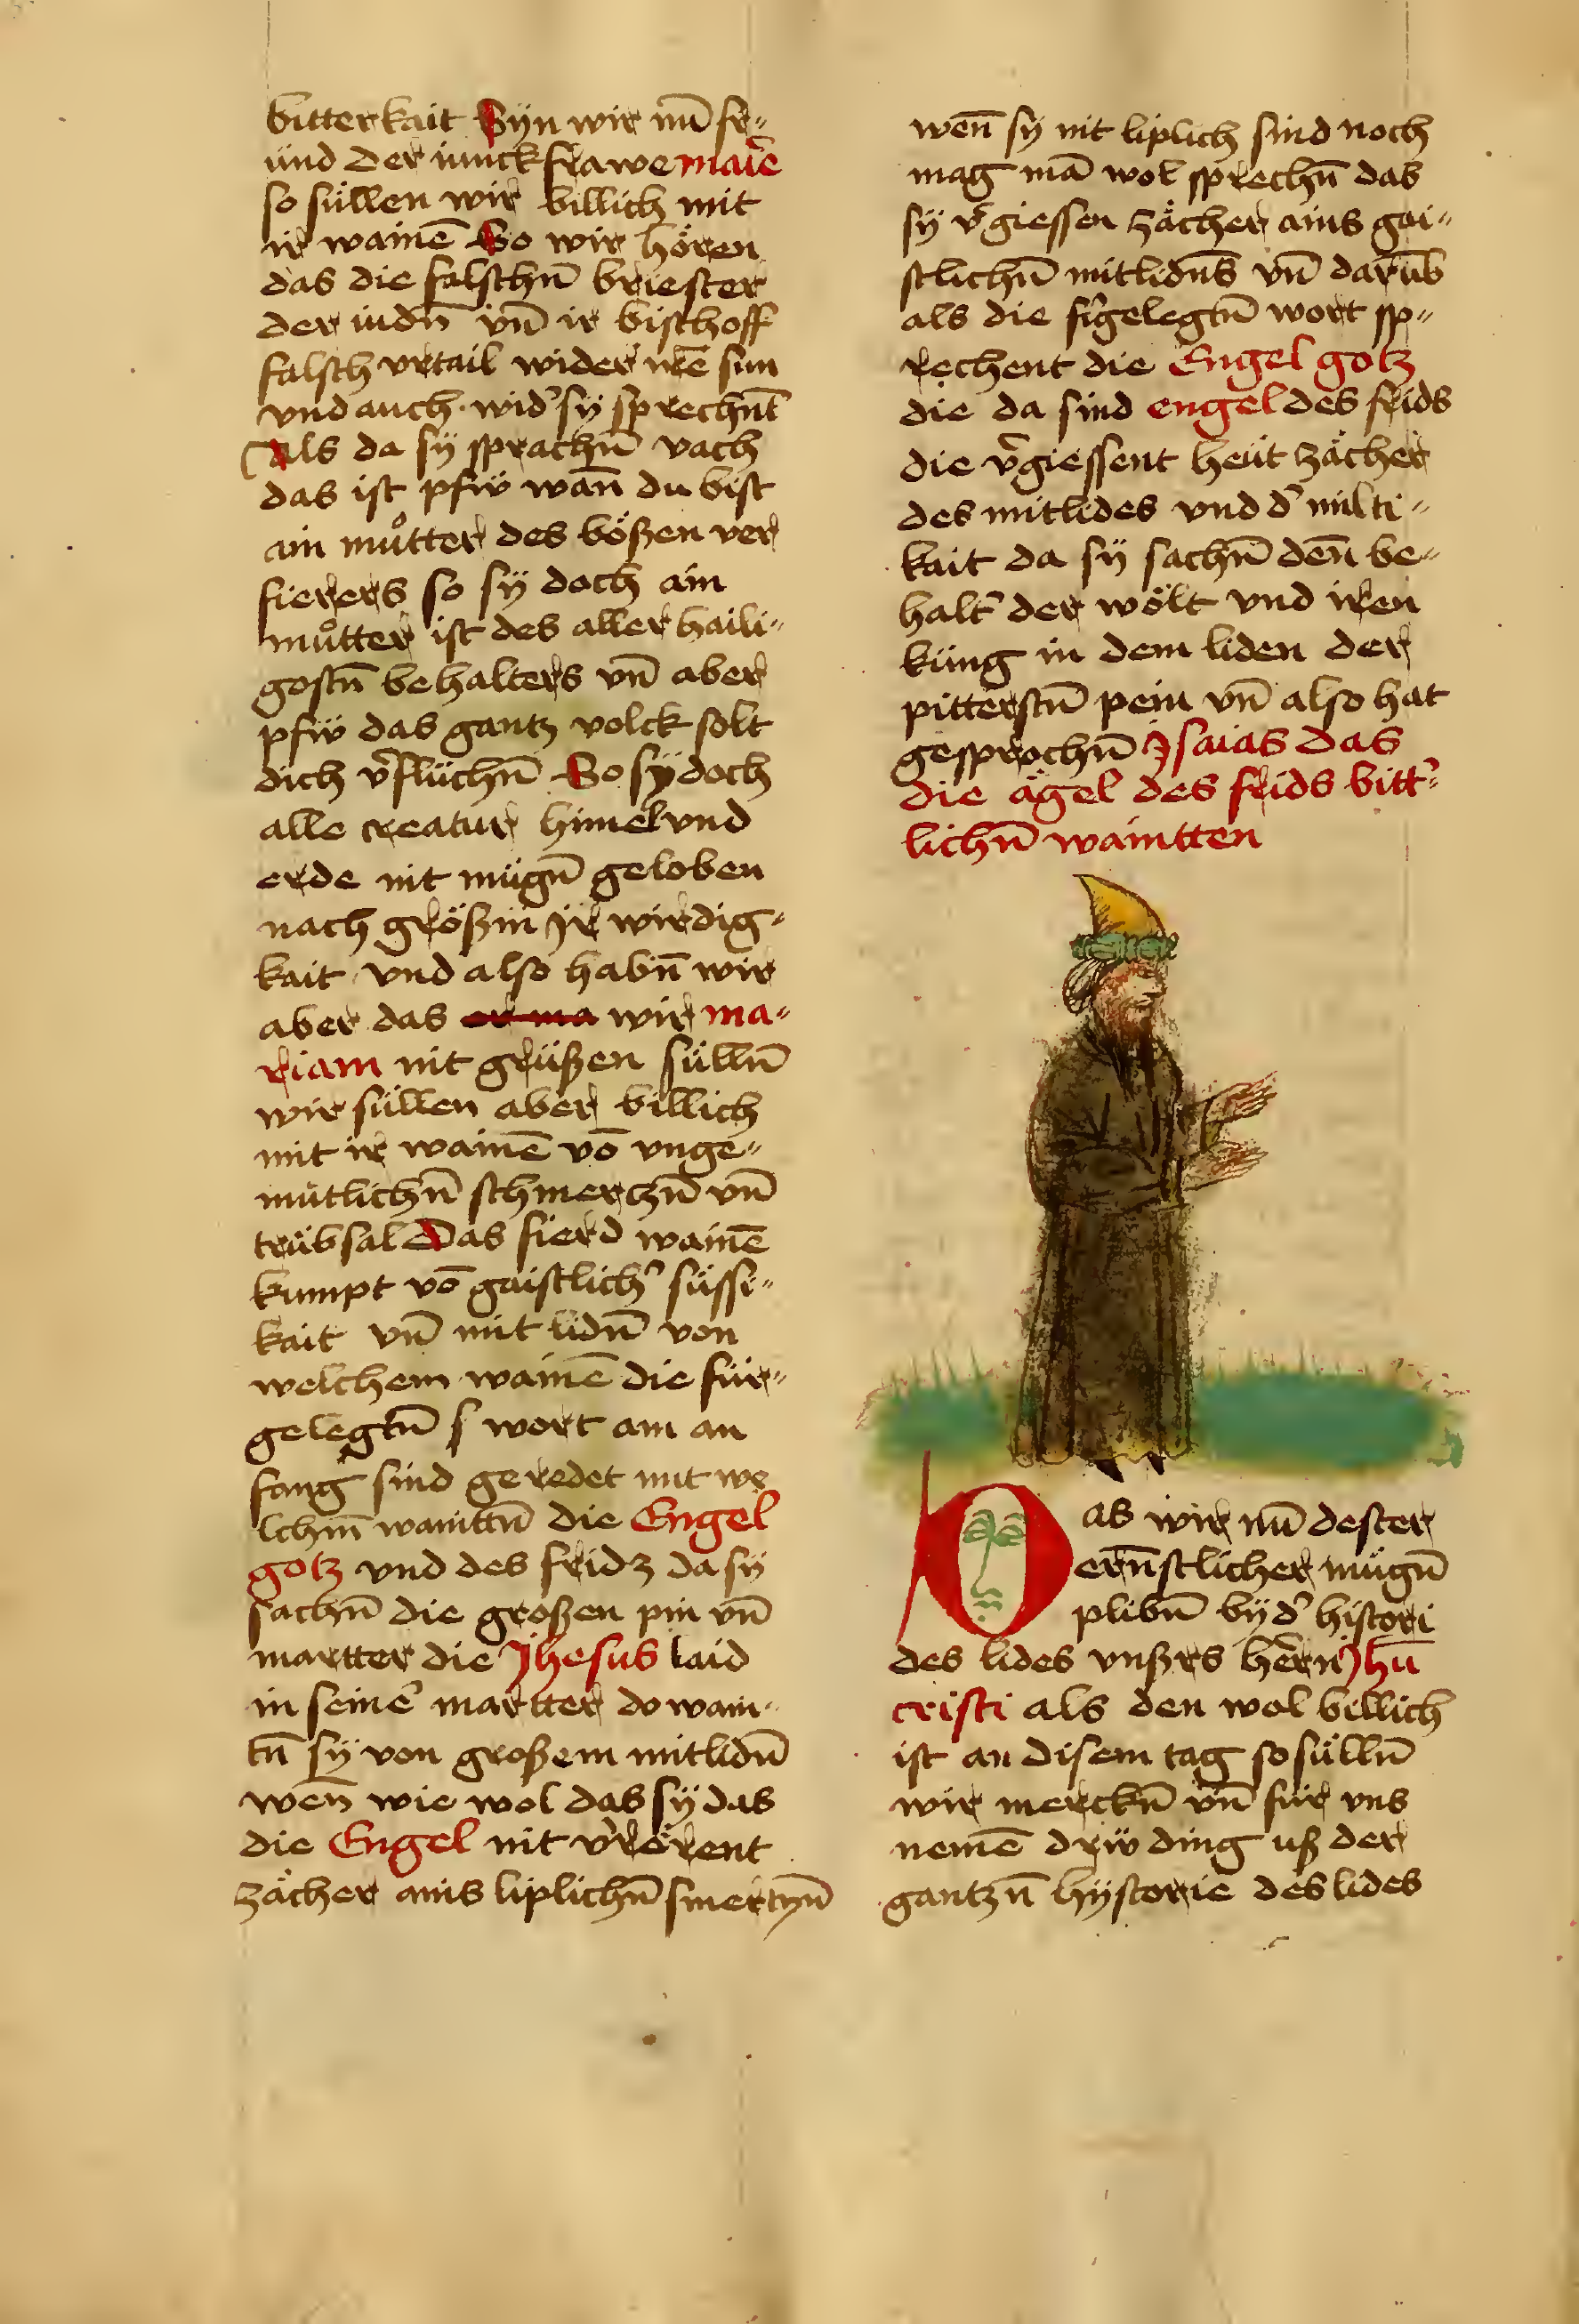 bitterkait Syn wir nu̅ fr⸗
ünd der iunckfrawe marie̅
so süllen wir billich mit
ir waine̅ So wir hören
das die falschn̅ briester
der iudn̅ vn̅ ir bischoff
falsch vrtail wider ire̅ sun
vnd auch wid' sÿ sprechnt̅
Als da sÿ sprachn̅ vach
das ist pfiv̈ wan̅ du bist
ain muͦtter des bößen ver
fierers so sÿ doch ain
muͦtter ist des aller haili⸗
gostn̅ behalters vn̅ aber
pfiv̈ das gantz volck solt
dich v'flüchn̅ So sÿ doch
alle creatur himel vnd
erde nit mügn̅ geloben
nach größin jr wirdig⸗
kait vnd also habn̅ wir
aber das er ma wir ma⸗
riam nit grüßen sülln̅
wir süllen aber billich
mit ir waine̅ vo̅ vnge⸗
mütlichn̅ schmerczn̅ vn̅
trübsal Das fierd waine̅
kumpt vo̅ gaistlich' süssi⸗
kait vn̅ mit lidn̅ von
welchem waine̅ die für⸗
gelegtn̅ s wort am an
fang sind geredet mit we
lchm̅ waintn̅ die Engel
gotz vnd des fridz da sÿ
sachn̅ die großen pin vn̅
martter die Jhesus laid
in seine' martter do wain⸗
tn̅ sÿ von großem mitlidn̅
wen̅ wie wol das sÿ das
die Engel nit v'rerent
zächer ains liplichn̅ smertzn̅
wen̅ sÿ nit liplich sind noch
mag ma̅ wol sprechn̅ das
sÿ v'giessen zächer ains gai⸗
stlichn̅ mitlidns̅ vn̅ daru̅b
als die fürgelegtn̅ wort sp⸗
rechent die Engel gotz
die da sind engel des frids
die v'giessent heüt zächer
des mitlides vnd d' milti⸗
kait da sÿ sachn̅ den̅ be⸗
halt' der wölt vnd iren
küng in dem liden der
pitterstn̅ pein vn̅ also hat
gesprochn̅ Jsaias das
die ägel des frids bitt'⸗
lichn̅ waintten
Das wir nu̅ dester
ern̅stlicher mügn̅
plibn̅ bÿ d' histori
des lides vnßrs her̅n Jhu̅
cristi als den wol billich
ist an disem tag so sülln̅
wir merckn̅ vn̅ für vns
neme̅ drÿ ding uß der
gantzn̅ hÿstorie des lides